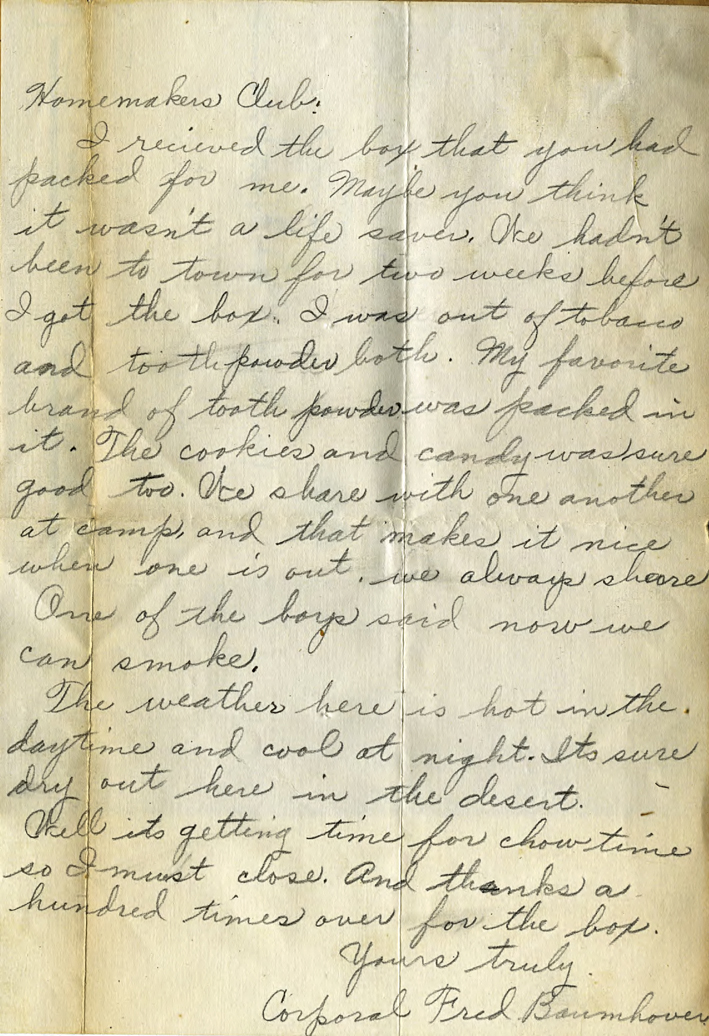 Homemakers Club:
I recieved the box that you had
packed for me. Maybe you think
it wasn't a life saver. We hadn't
been to town for two weeks before
I got the box. I was out of tobacco
and tooth powder both. My favorite
brand of tooth powder was packed in
it. The cookies and candy was sure
good too. We share with one another
at camp, and that makes it nice
when one is out, we always share
One of the boys said now we
can smoke.
The weather here is hot in the
daytime and cool at night. Its sure
dry out here in the desert.
Well its getting time for chow time
so I must close. And thanks a
hundred times over for the box.
Yours truly.
Corporal Fred Baumhover